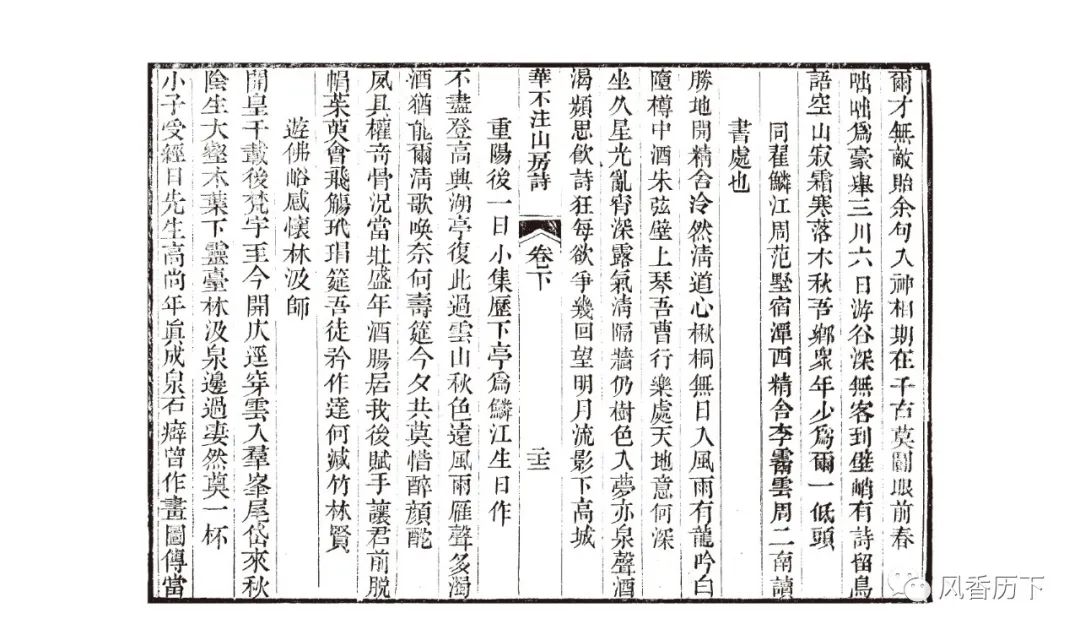 爾才無敵貽余句入神相期在千古莫鬭眼前春
咄咄爲豪舉三川六日游谷深無客到壁峭有詩留鳥
語空山寂霜寒落木秋吾鄉衆年少爲爾一低頭
同翟鱗江周范墅宿潭西精舍李雲周二南讀
書處也
勝地開精舍泠然清道心楸桐無日入風雨有龍吟白
隨樽中酒朱弦壁上琴吾曹行樂處天地意何深
坐久星光亂宵深露氣清隔牆仍樹色入夢亦泉聲酒
渴頻思飲詩狂每欲爭幾回望明月流影下高城
華不注山房詩 卷下 二三
重陽後一日小集歷下亭爲鱗江生日作
不盡登高興湖亭復此過雲山秋色遠風雨雁聲多濁
酒猶能爾清歌喚奈何壽筵今夕共莫惜醉顏酡
夙具權奇骨況當壯盛年酒腸居我後賦手讓君前脫
帽茱萸會飛觴玳瑁筵吾徒矜作達何減竹林賢
遊佛峪感懷林汲師
開皇千載後梵宇至今開仄逕穿雲入羣峯尾岱來秋
陰生大壑木葉下靈臺林汲泉邊過淒然奠一杯
小子受經日先生高尚年眞成泉石癖曾作畫圖傳當
风香历下